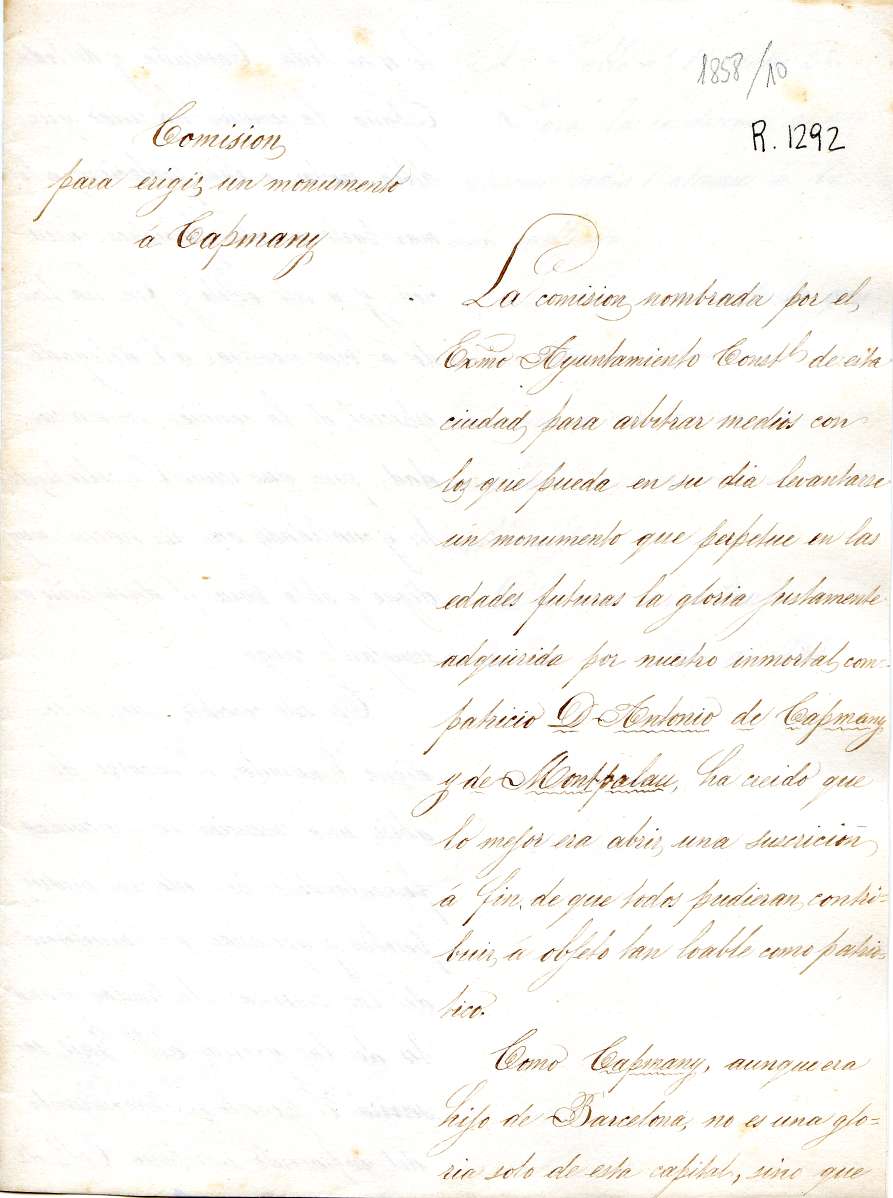 1858/10
R. 1292
Comision
para erigir un monumento
á Capmany
La comision nombrada por el
Exmo Ayuntamiento Constl de esta
ciudad para arbitrar medios con
los que pueda en su dia levantarse
un monumento que perpetue en las
edades futuras la gloria justamente
adquirida por nuestro inmortal com-
patricio D Antonio de Capmany
y de Montpalau, ha creido que
lo mejor era abrir una suscricion
á fin de que todos pudieran contri-
buir á objeto tan loable como patrio-
tico.
Como Capmany, aunque era
hijo de Barcelona, no es una glo=
ria solo de esta capital, sino que